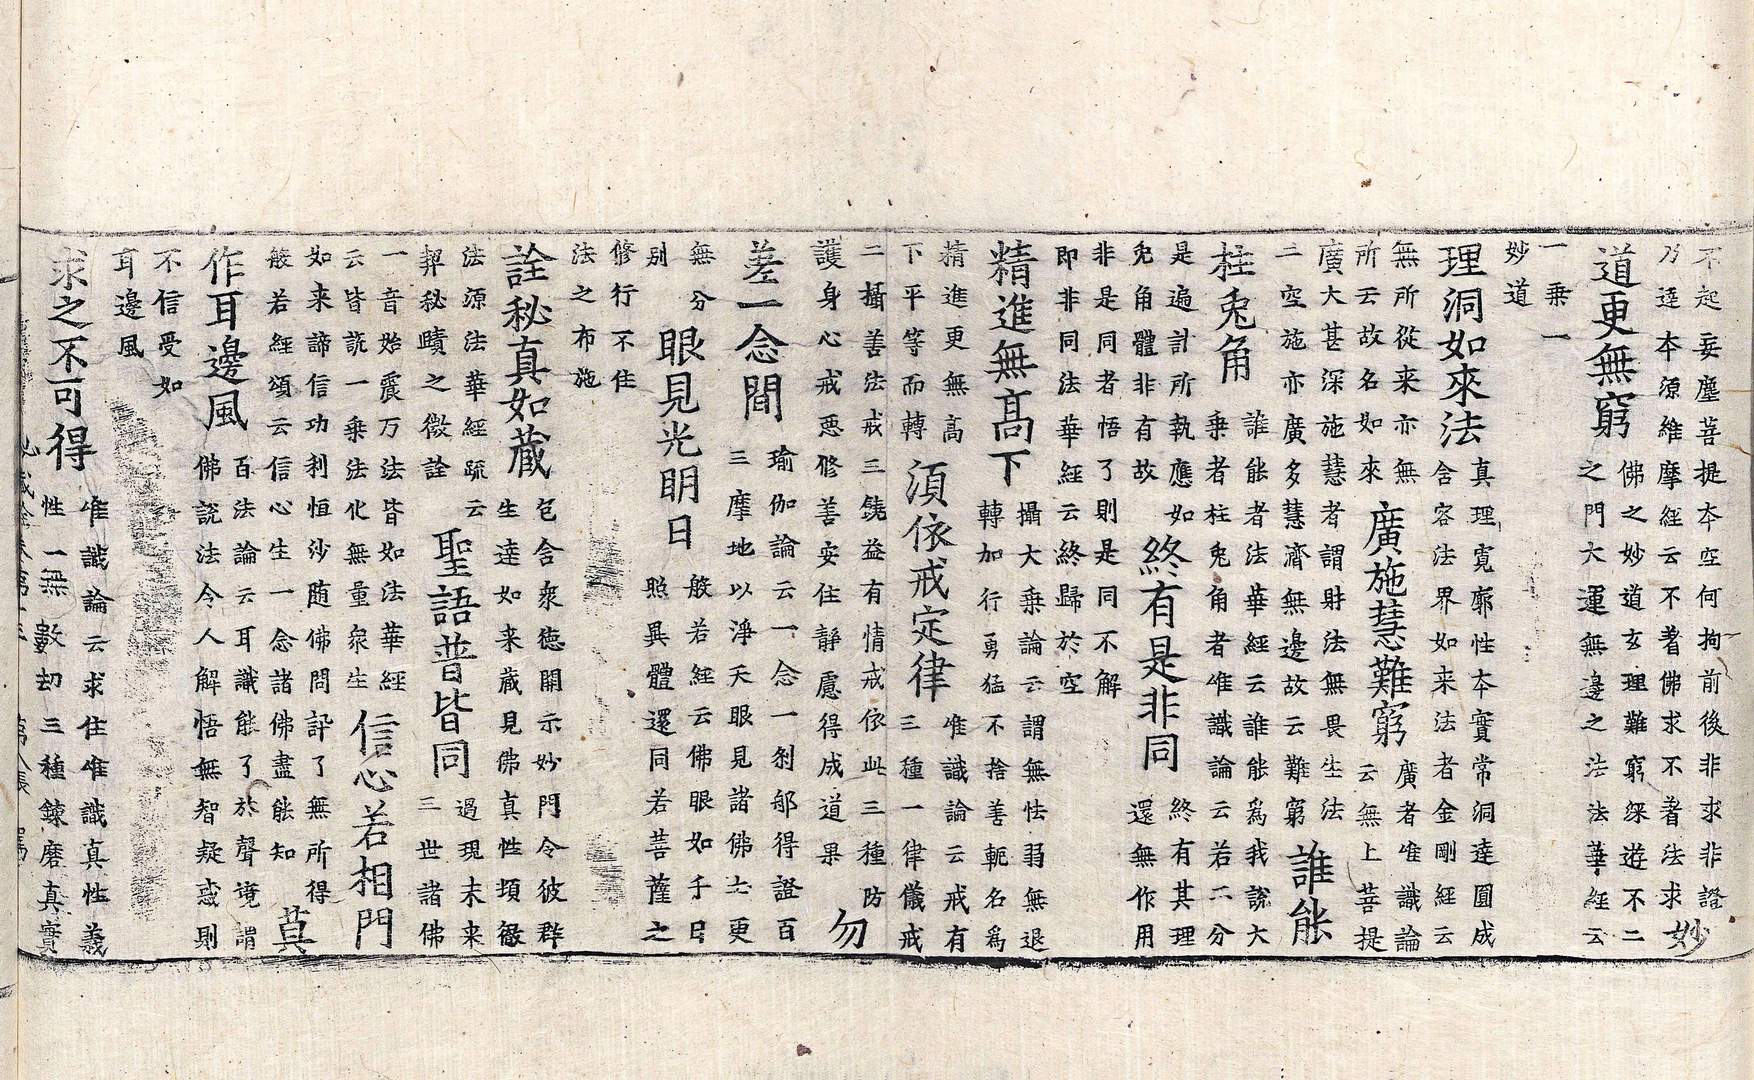 不起妄塵菩提本空何拘前後非求非證
乃達本源維摩經云不著佛求不著法求妙
道更無窮佛之妙道玄理難窮綵遊不二
之門大運無邊之法法華經云
一乘一
妙道
理洞如來法真理寛廓性本實常洞達圓成
含容法界如来法者金剛經云
無所從来亦無
所云故名如來廣施慧難窮廣者唯識論
云無上菩提
廣大甚深施慧者謂財法無畏生法
二空施亦廣多慧濟無邊故云難窮誰能
柱兎角誰能者法華經云誰能爲我說大
乗者柱兎角者唯識論云若二分
是遍計所執應如
兎角體非有故終有是非同終有其理
還無作用
非是同者悟了則是同不解
即非同法華經云終歸於空
精進無髙下攝大乗論云謂無怯弱無退
轉加行勇猛不捨善軛名爲
精進更無髙
下平等而轉須依戒定律唯識論云戒有
三種一律儀戒
二攝善法戒三饒益有情戒依此三種防
護身心戒悪修善安住靜慮得成道果勿
差一念間瑜伽論云一念一刹那得證百
三摩地以淨天眼見諸佛土更
無分
别眼見光明日般若經云佛眼如千日
照異體還同若菩薩之
修行不住
法之布施
詮秘真如藏包含衆徳開示妙門令彼群
生達如来藏見佛真性頂徹
法源法華經䟽云
契秘賾之微詮聖語普皆同過現未来
三世諸佛
一音始震万法皆如法華經
云皆説一乗法化無量衆生信心若相門
如来諦信功利恒沙随佛問訃了無所得
般若經頌云信心生一念諸佛盡能知莫
作耳邊風百法論云耳識能了於聲境謂
佛說法令人解悟無智疑惑則
不信受如
耳邊風
求之不可得唯識論云求住唯識真性義
性一無數劫三種錬磨真實